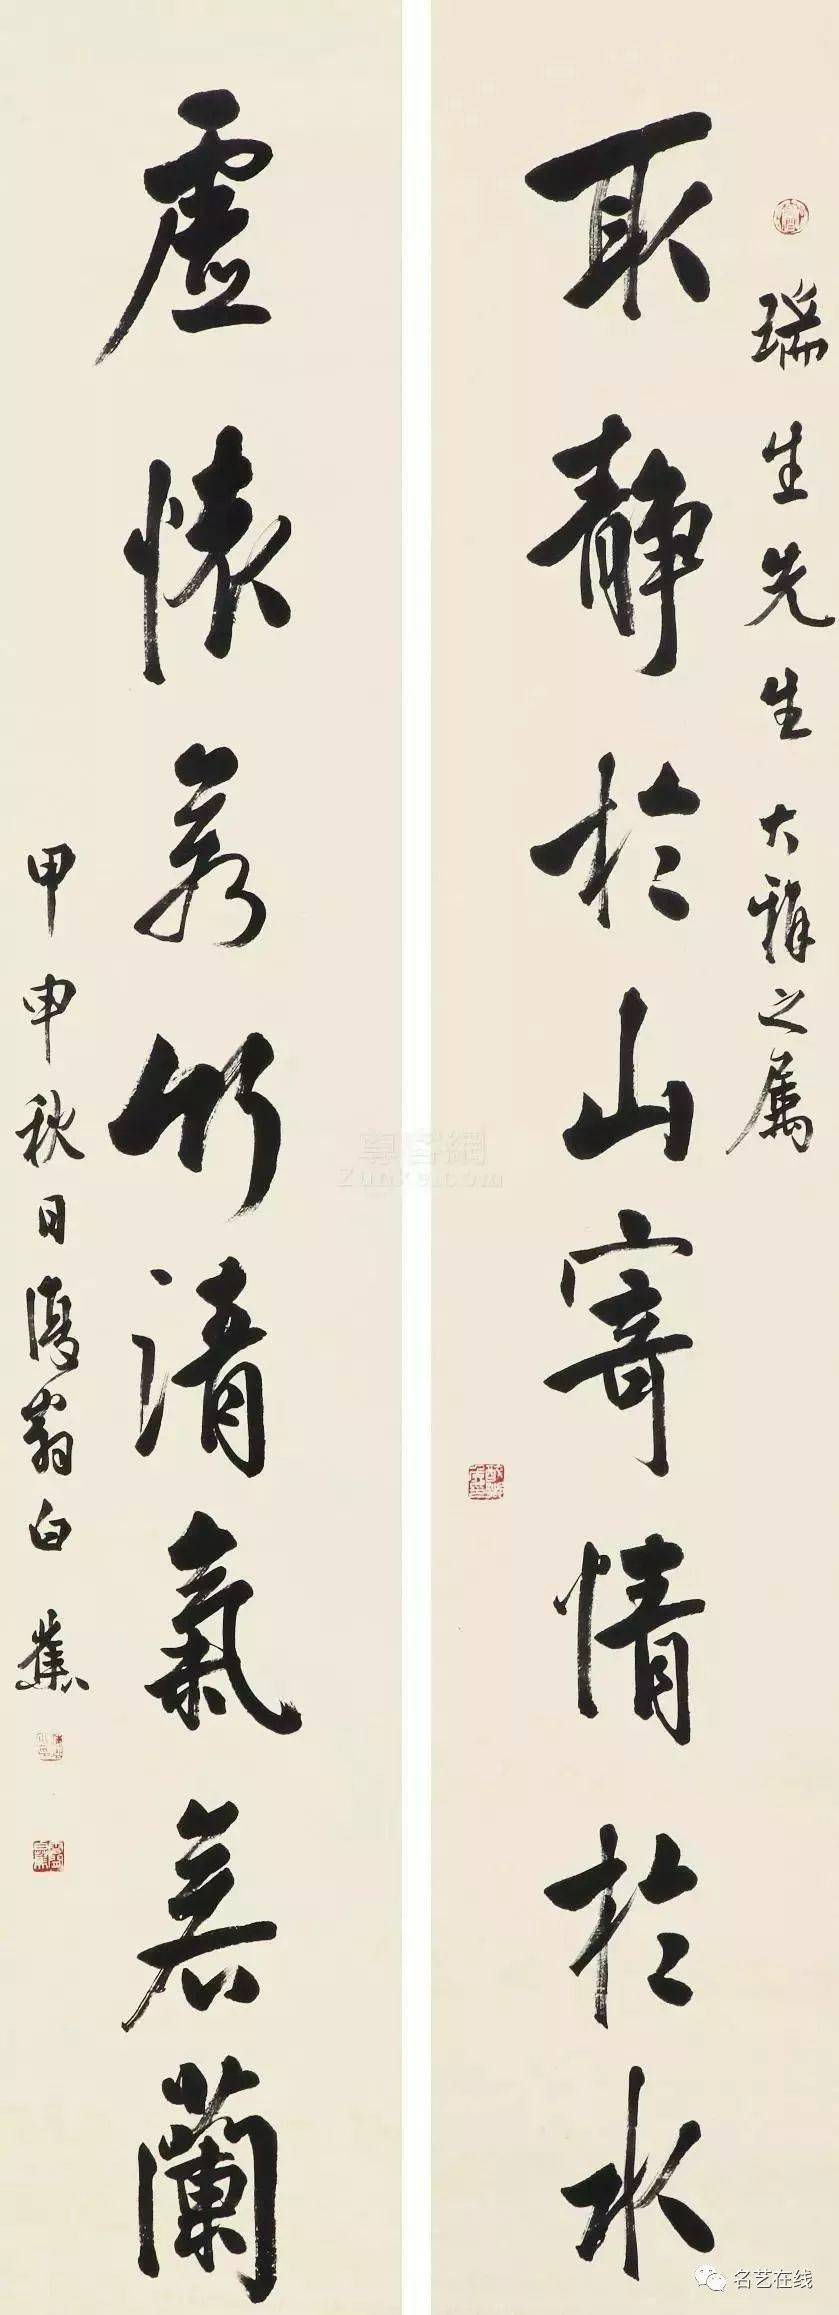 瑞生先生大雅之属
取静於山寄情於水
虚懷若竹清氣若蘭
甲申秋日復翁白蕉
尊客網
Zunke.com
名艺在线